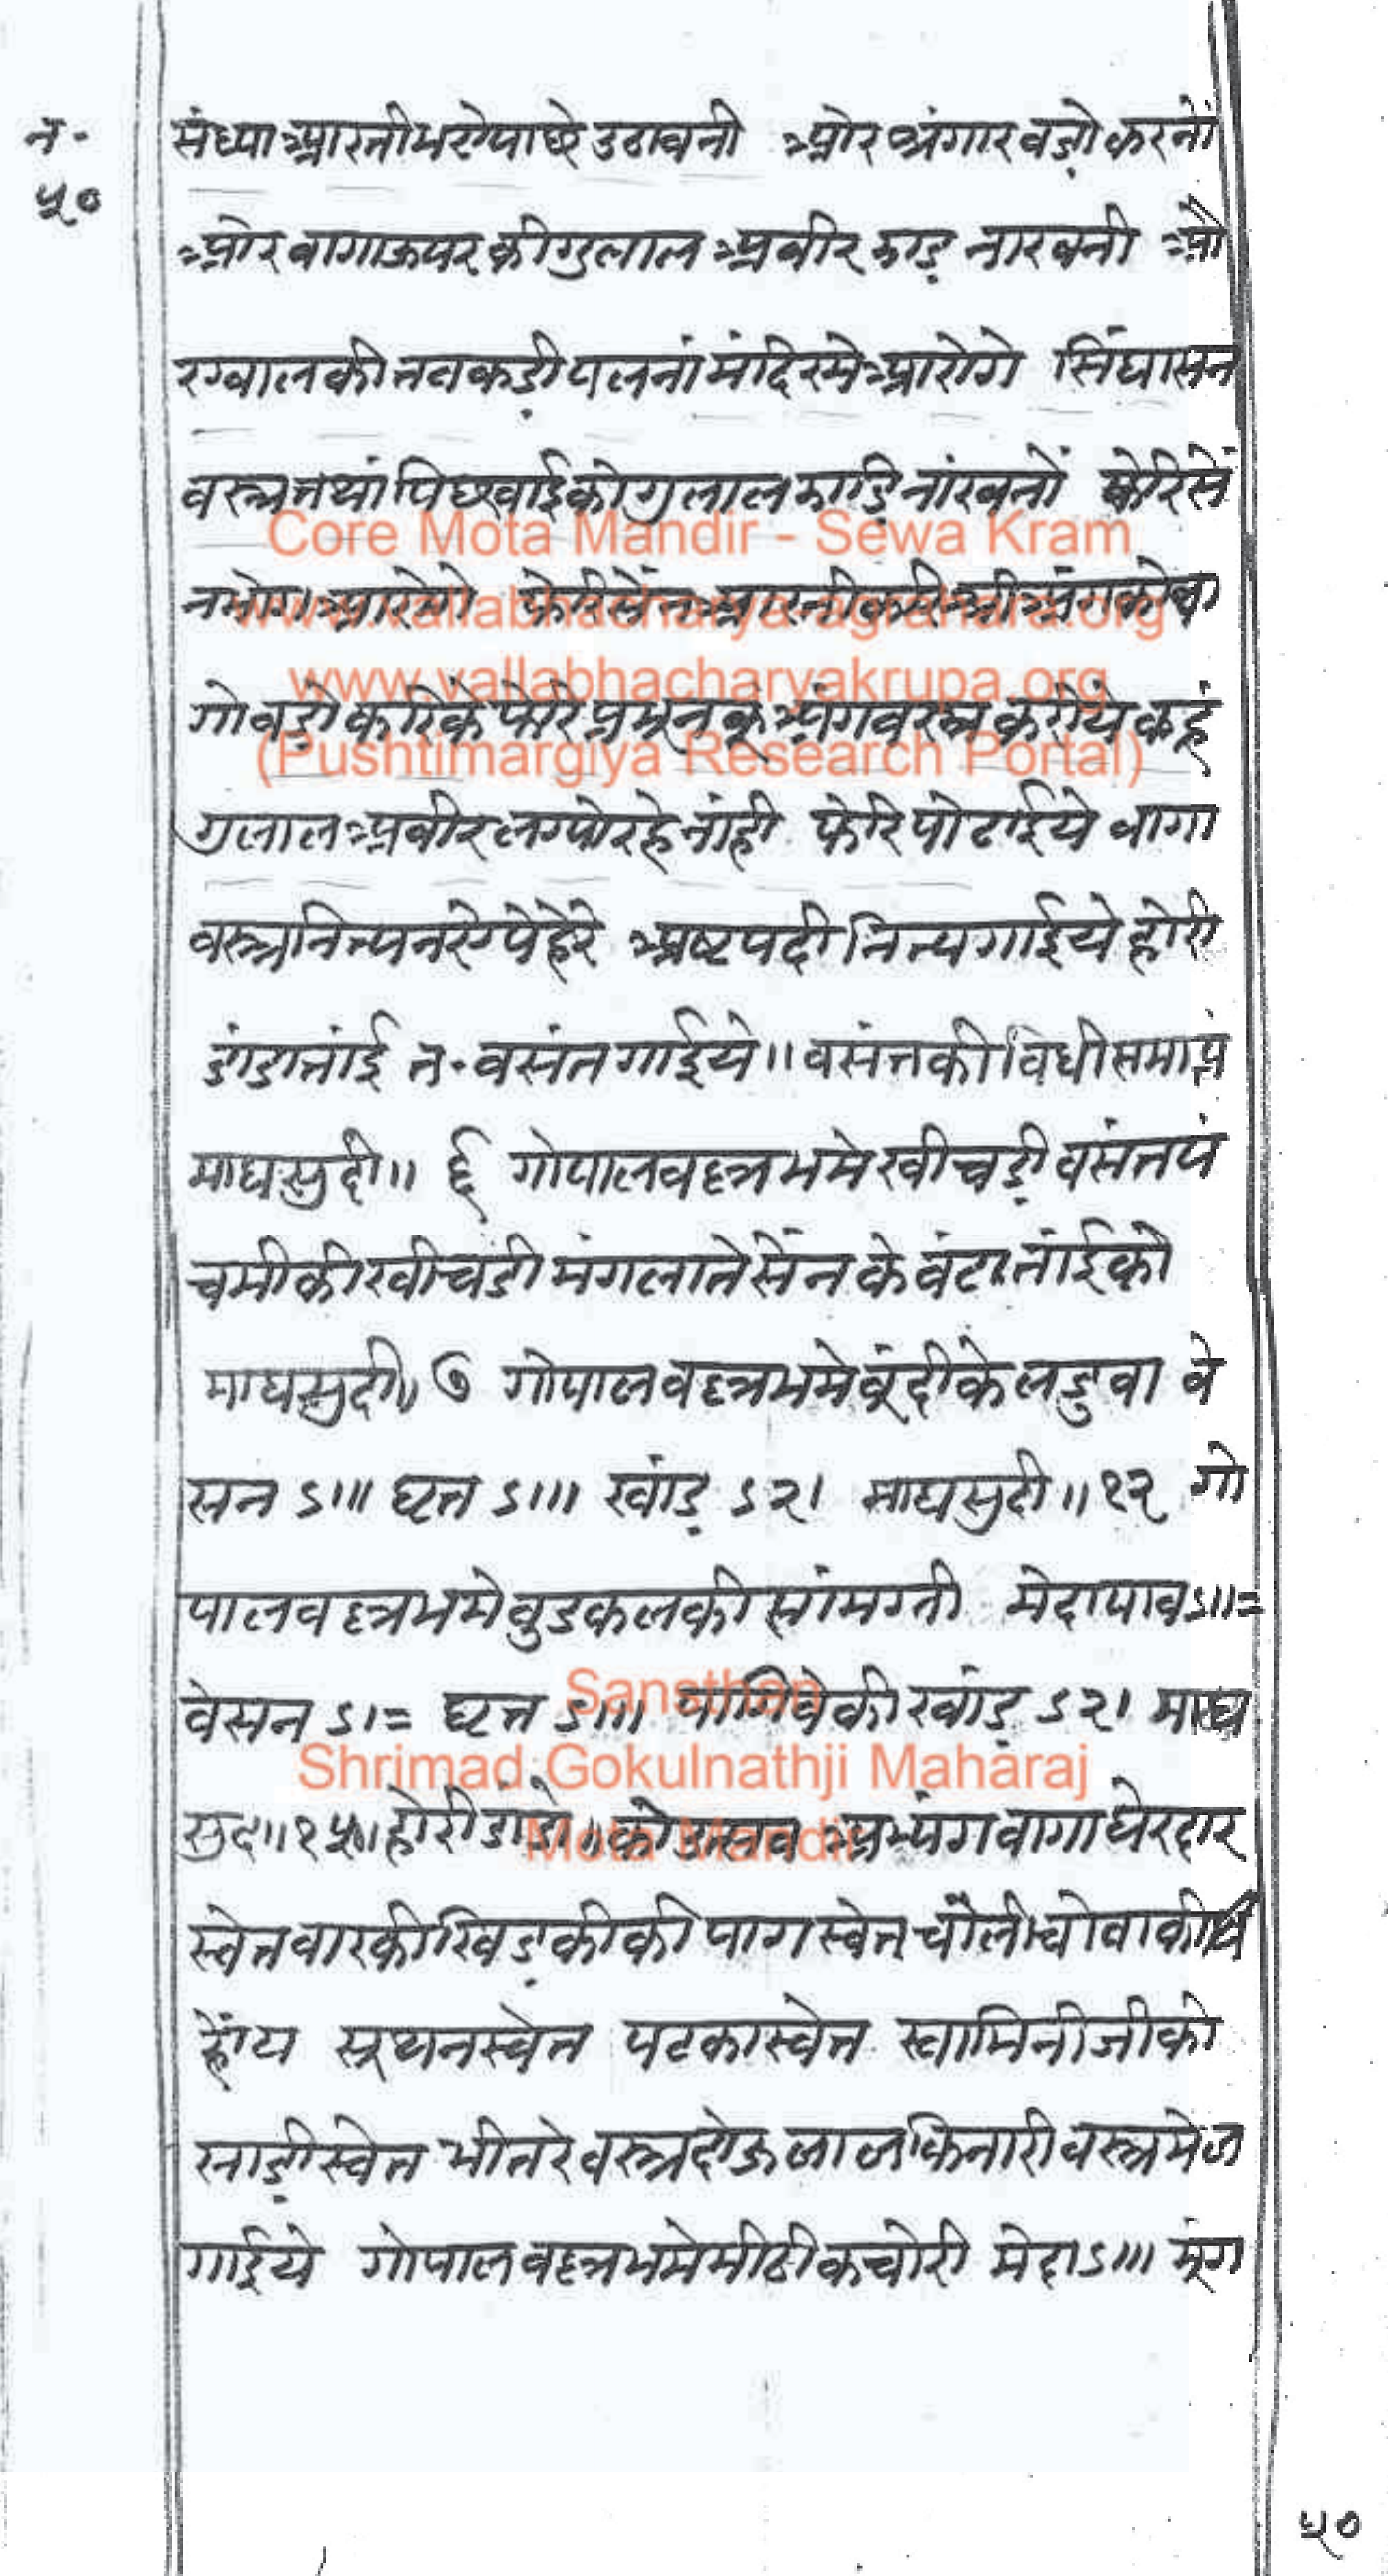 न॰
५०
संध्या आरती भये पाछे उठावनी ओर श्रंगार वडो़ करनों
ओर वागा ऊपर की गुलाल अवीर झाड़ नाखनी ओ
र ग्वाल की तवकडी़ पलनां मंदिर मे आरोगे सिंघासन
वस्त्र तथां पिछवाई को गुलाल झाडि़ नांखनों फेरि सें
न भोग आरोगे फेरि सेंन आरती करि श्री अंग को वा
गो वडो़ करिके फेरि प्रभून कू अंगवस्त्र करीये कहूं
गुलाल अवीर लग्यो रहे नांही फेरि पोढाईये वागा
वस्त्र नित्य नये पेहेरे अष्टपदी नित्य गाईये होरी
डांडा तांई त॰ वसंत गाईये॥ वसंत की विधी समाप्तं
माघ सुदी॥ ६ गोपाल वल्लभ मे खीचडी़ वसंत पं
चमी की खीचडी मंगला ते सेंन के वंटा तांई को
माघ सुदी॥ ७ गोपाल वल्लभ मे बूंदी के लडुवा वे
सन ऽ॥। घृत ऽ॥। खांड़ ऽ२। माघ सुदी॥ १२ गो
पाल वल्लभ मे वुडकल की सांमग्री मेदा पाव ऽ॥=
वेसन ऽ।= घृत ऽ॥। पागिवे की खांड़ ऽ२। माघ
सुद॥ १५॥ होरी डांडो॥ को उत्सव अभ्यंग वागा घेरदार
स्वेत वारकी खिड़की की पाग स्वेत चोली चोवा की
होय सूथन स्वेत पटका स्वेत स्वामिनीजी को
साडी़ स्वेत भीतरे वस्त्र दोऊ लाल किनारी वस्त्र मे ल
गाईये गोपाल वल्लभ मे मीठी कचोरी मेदा ऽ॥। मूंग
५०
Core Mota Mandir - Sewa Kram
www.vallabhacharya-agrahara.org
www.vallabhacharyakrupa.org
(Pushtimargiya Research Portal)
Sansthan
Shrimad Gokulnathji Maharaj
Mota Mandir